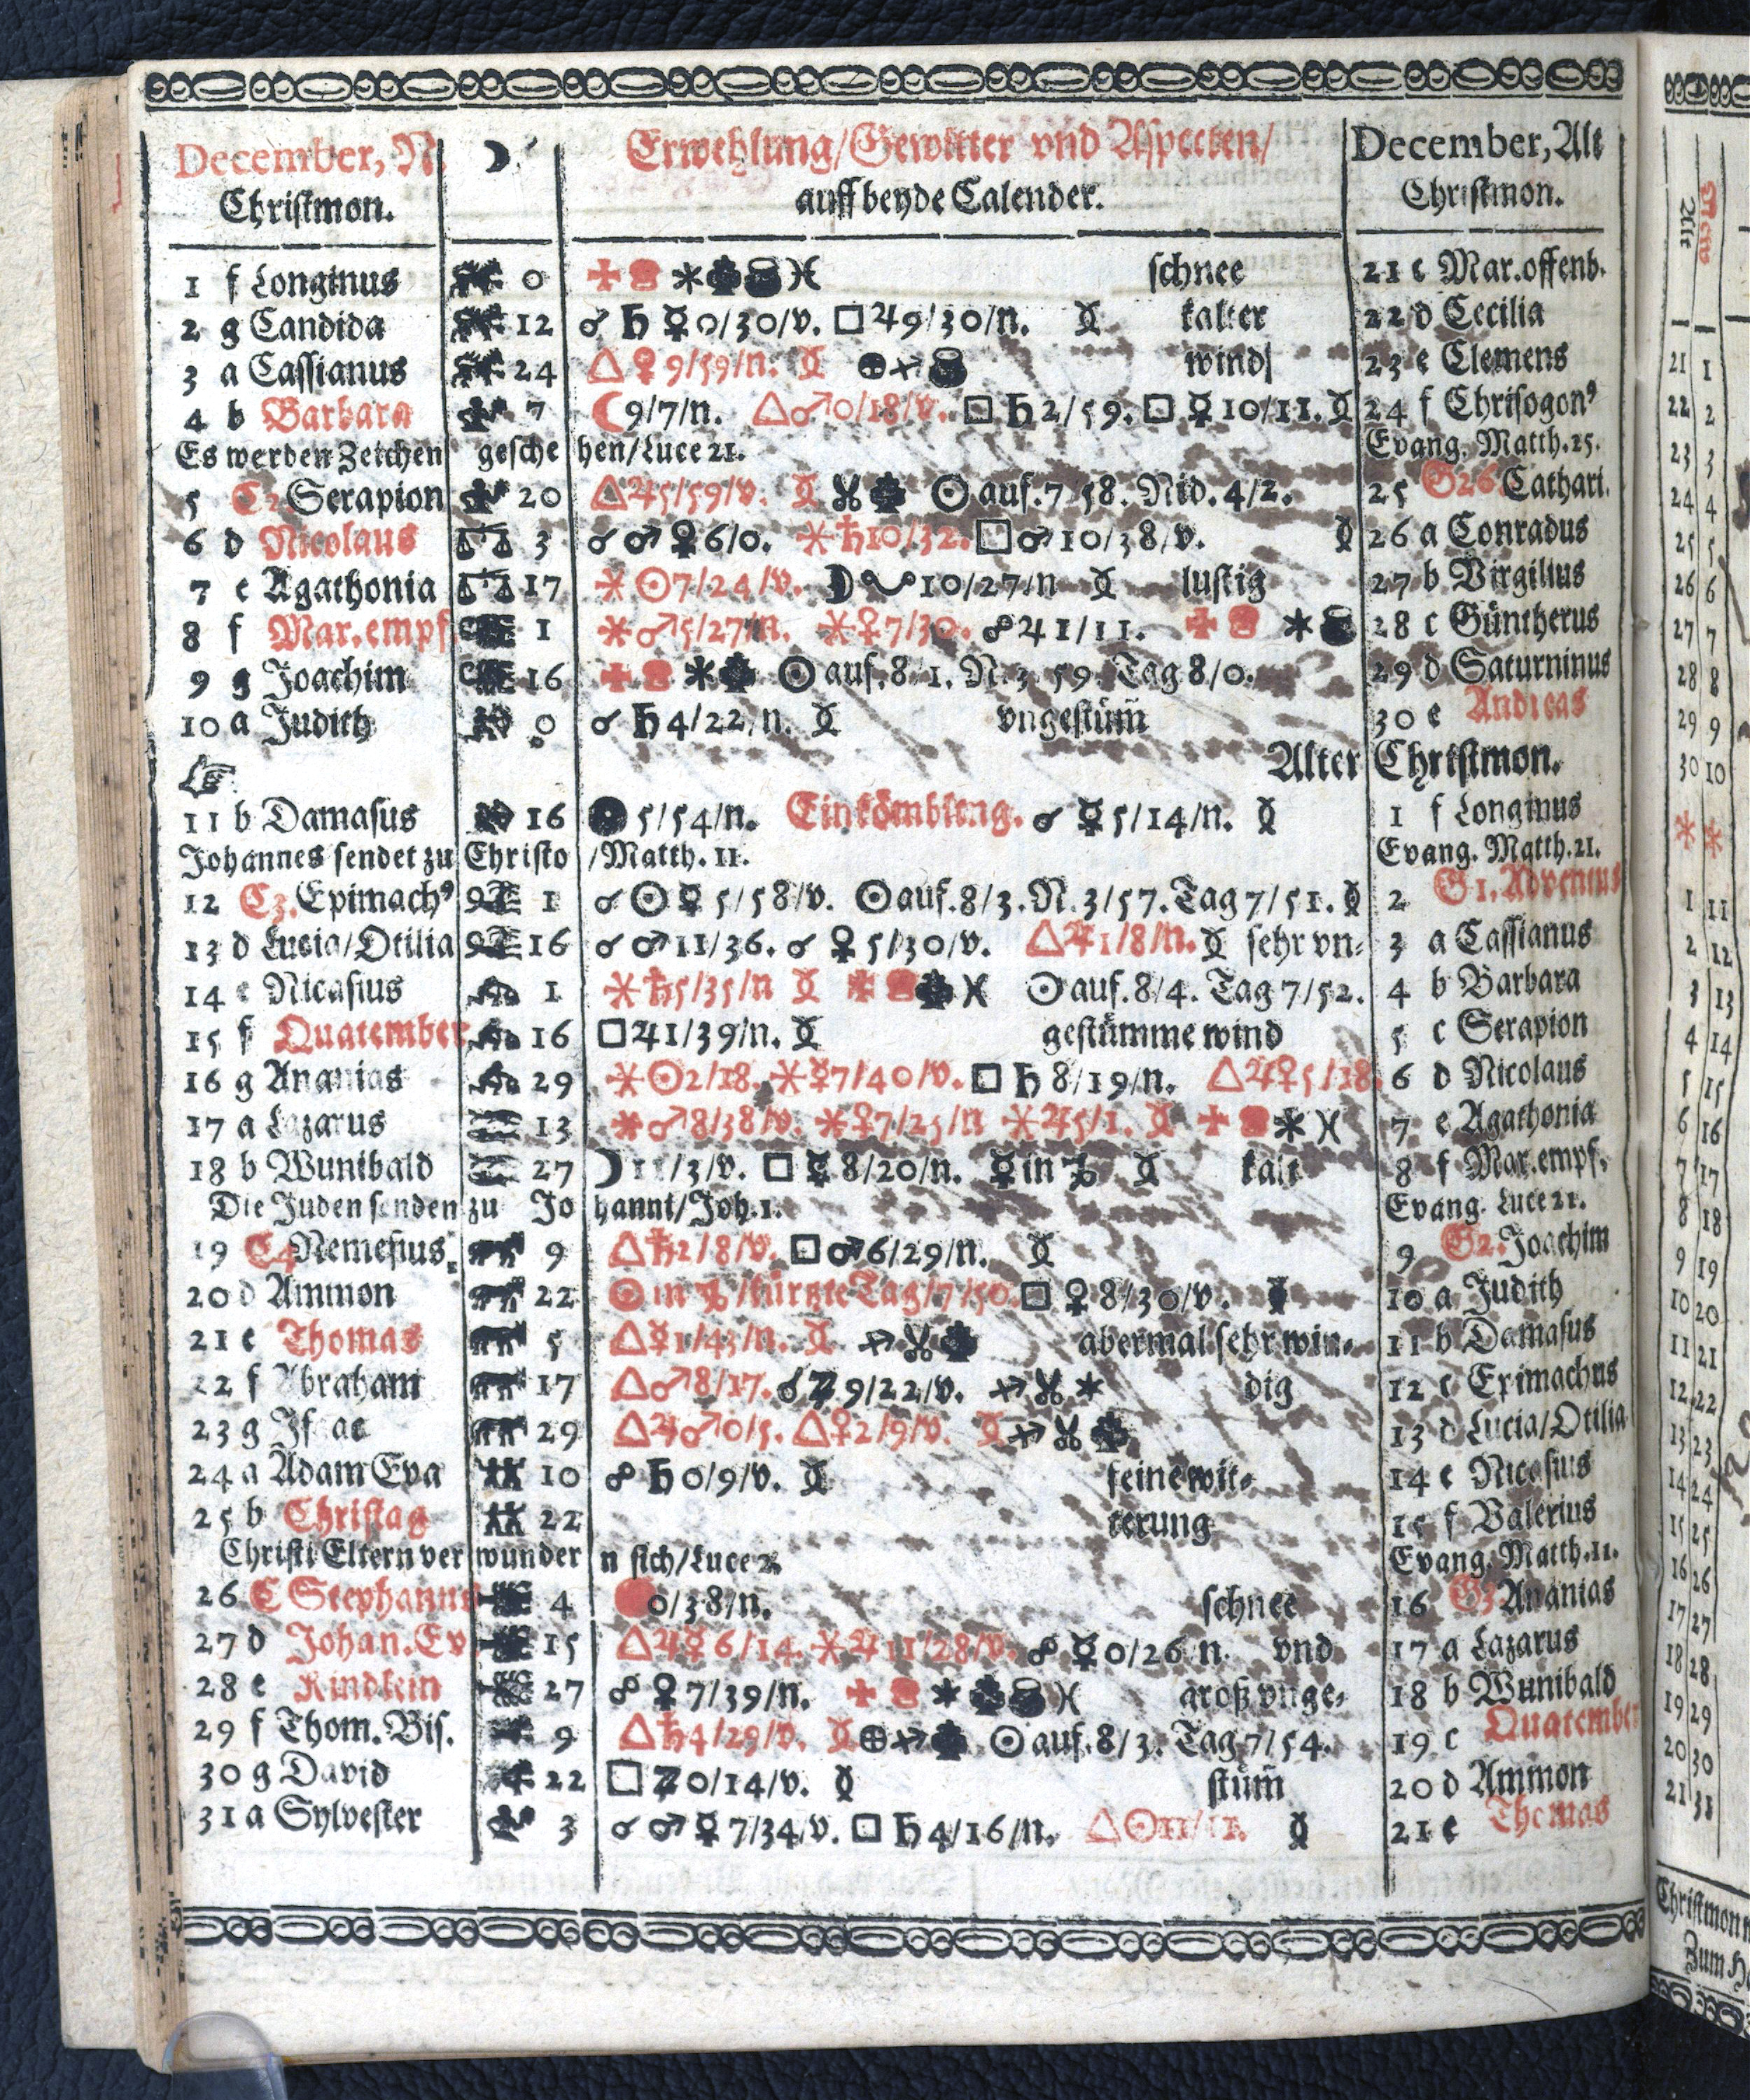 December, N. ☽ Erwehlung/Gewitter vnd Aspecten/ December, Alt
Christmon. auff beyde Calender. Christmon.
1 f Longinus 0 schnee 21 c Mar.offenb.
2 g Candida 12 ☌ ♄ ☿ 0/30/v. □ ♃ 9/30/n. kalter 22 d Cecilia
3 a Cassianus 24 △ ♀ 9/59/n. wind/ 23 e Clemens
4 b Barbara 7 ☾ 9/7/n. △ ♂ 0/18/v. □ ♄ 2/59. □ ☿ 10/11. 24 f Chrisogonꝰ
Es werden Zeichen geschehen/Luce 21. Evang. Matth.25.
5 C2. Serapion 20 △ ♃ 5/59/v. ☉ auf. 7/58. Nid. 4/2. 25 G26. Cathari.
6 d Nicolaus 3 ☌ ♂ ♀ 6/0. ⚹ ♄ 10/32. □ ♂ 10/38/v. 26 a Conradus
7 e Agathonia 17 ⚹ ☉ 7/24/v. 10/27/n lustig 27 b Virgilius
8 f Mar.empf. 1 ⚹ ♂ 5/27/n. ⚹ ♀ 7/30. ☍ ♃ 1/11. 28 c Güntherus
9 g Joachim 16 ☉ auf. 8/1. N. 3/59. Tag 8/0. 29 d Saturninus
10 a Judith 0 ☌ ♄ 4/22/n. vngestüm̃ 30 e Andreas
Alter Christmon.
11 b Damasus 16 ● 5/54/n. ☌ ☿ 5/14/n. 1 f Longinus
Johannes sendet zu Christo/Matth. 11. Evang. Matth.21.
12 C3. Epimachꝰ 1 ☌ ☉ ☿ 5/58/v. ☉ auf. 8/3. N. 3/57. Tag 7/51. 2 G1. Adventus
13 d Lucia/Otilia 16 ☌ ♂ 11/36. ☌ ♀ 5/30/v. △ ♃ 1/8/n. sehr vn⸗ 3 a Cassianus
14 e Nicasius 1 ⚹ ♄ 5/35/n ☉ auf. 8/4. Tag 7/52. 4 b Barbara
15 f Quatember 16 □ ♃ 1/39/n. gestümme wind 5 c Serapion
16 g Ananias 29 ⚹ ☉ 2/18. ⚹ ☿ 7/40/v. □ ♄ 8/19/n. △ ♃ ♀ 5/18. 6 d Nicolaus
17 a Lazarus 13 ⚹ ♂ 8/38/v. ⚹ ♀ 7/25/n ⚹ ♃ 5/1. 7 e Agathonia
18 b Wunibald 27 ☽ 11/3/v. □ ☿ 8/20/n. ☿ in ♑ kalt 8 f Mar.empf.
Die Juden senden zu Johanni/Joh. 1. Evang. Luce 21.
19 C4 Nemesius. 9 △ ♄ 2/8/v. □ ♂ 6/29/n. 9 G2. Joachim
20 d Ammon 22 ☉ in ♑/kürtzte Tag/7/50. □ ♀ 8/30/v. 10 a Judith
21 e Thomas 5 △ ☿ 1/43/n. abermal sehr win⸗ 11 b Damasus
22 f Abraham 17 △ ♂ 8/17. ☌ ♃ 9/22/v. dig 12 c Epimachus
23 g Isaac 29 △ ♃ ♂ 0/5. △ ♀ 2/9/v. 13 d Lucia/Otilia
24 a Adam Eva 10 ☍ ♄ 0/9/v. feine wit⸗ 14 e Nicasius
25 b Christag 22 terung 15 f Valerius
Christi Eltern verwundern sich/Luce 2. Evang. Matth.11.
26 C Stephanus 4 0/38/n. schnee 16 G3 Ananias
27 d Johan.Ev. 15 △ ♃ ☿ 6/14. ⚹ ♃ 11/28/v. ☍ ☿ 0/26 n. vnd 17 a Lazarus
28 e Kindlein 27 ☍ ♀ 7/39/n. groß vnge⸗ 18 b Wunibald
29 f Thom.Bis. 9 △ ♄ 4/29/v. ☉ auf. 8/3. Tag 7/54. 19 c Quatember
30 g David 22 □ ♃ 0/14/v. stüm̃ 20 d Ammon
31 a Sylvester 3 ☌ ♂ ☿ 7/34/v. □ ♄ 4/16/n. △ ☉ 21 e Thomas